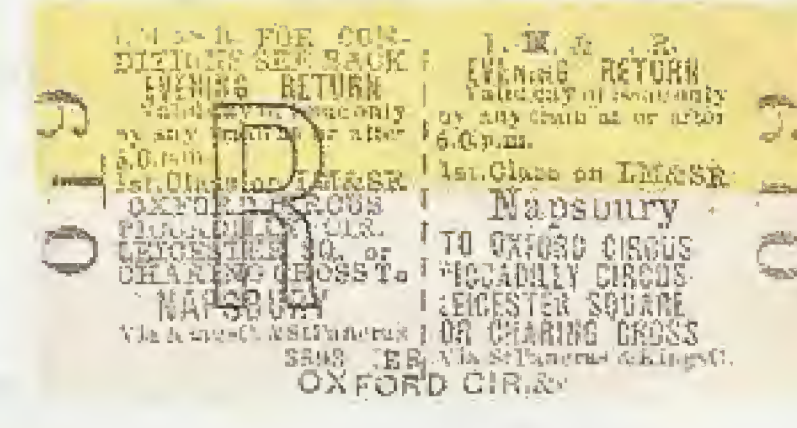 FOR CON-
DITIONS SEE BACK
EVENING RETURN
Valid day of issue only
by any train at or after
6.0 p.m.
1st. Class on LM&SR
OXFORD CIRCUS
PICCADILLY CIR.
LEICESTER SQ. or
CHARING CROSS To
NAPSBURY
Via Kings C. & St Pancras
R
OXFORD CIR.&c
L. M. & S. R.
EVENING RETURN
Valid day of issue only
by any train at or after
6.0 p.m.
1st. Class on LM&SR
Napsbury
TO OXFORD CIRCUS
PICCADILLY CIRCUS
LEICESTER SQUARE
OR CHARING CROSS
Via St Pancras & Kings C.